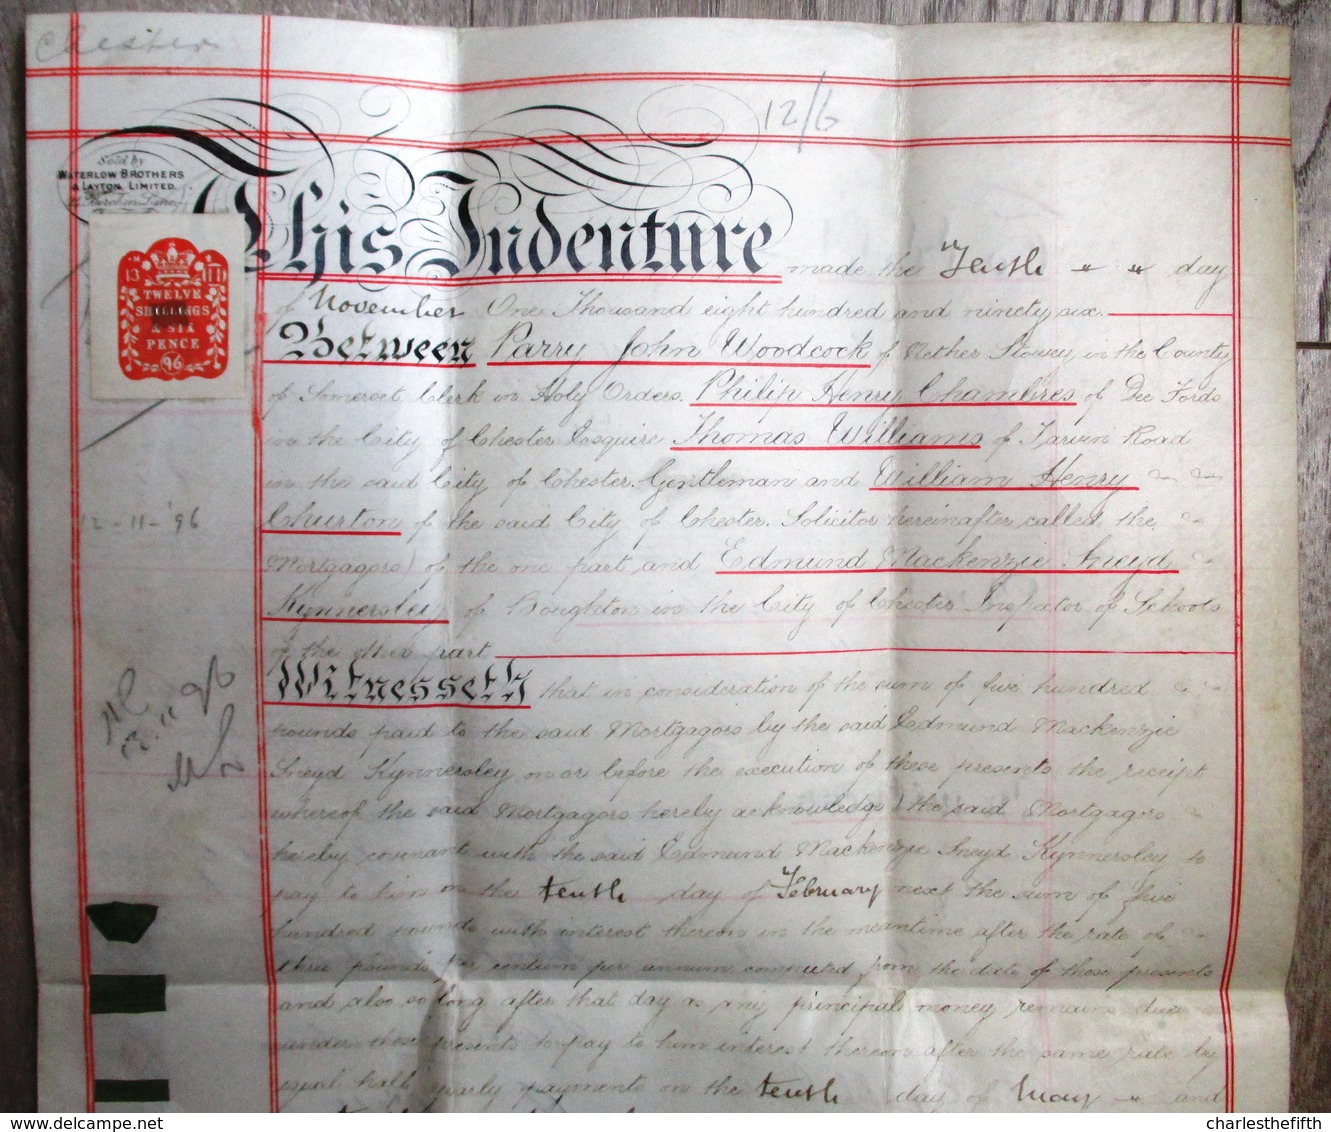 Chester
12/6
Sold by
WATERLOW BROTHERS
& LAYTON, LIMITED.
Birchin Lane
This Indenture made the Tenth day
13 III
TWELVE
SHILLINGS
& SIX
PENCE
96
of November One Thousand eight hundred and ninety six.
Between Parry John Woodcock of Nether Stowey in the County
of Somerset Clerk in Holy Orders Philip Henry Chambres of Dee Fords
in the City of Chester Esquire Thomas Williams of Tarvin Road
in the said City of Chester Gentleman and William Henry
Churton of the said City of Chester. Solicitor hereinafter called the
12-11-'96
Mortgagors) of the one part and Edmund Mackenzie Sneyd
Kynnersley of Boughton in the City of Chester Inspector of Schools
of the other part
Witnesseth that in consideration of the sum of five hundred
pounds paid to the said Mortgagors by the said Edmund Mackenzie
Sneyd Kynnersley on or before the execution of these presents the receipt
whereof the said Mortgagors hereby acknowledge) the said Mortgagors
hereby covenant with the said Edmund Mackenzie Sneyd Kynnersley to
pay to him on the tenth day of February next the sum of five
hundred pounds with interest thereon in the meantime after the rate of
three pounds per centum per annum computed from the date of these presents
and also so long after that day as any principal money remains due
under these presents to pay to him interest thereon after the same rate by
equal half yearly payments on the tenth day of May and
charlesthefifth